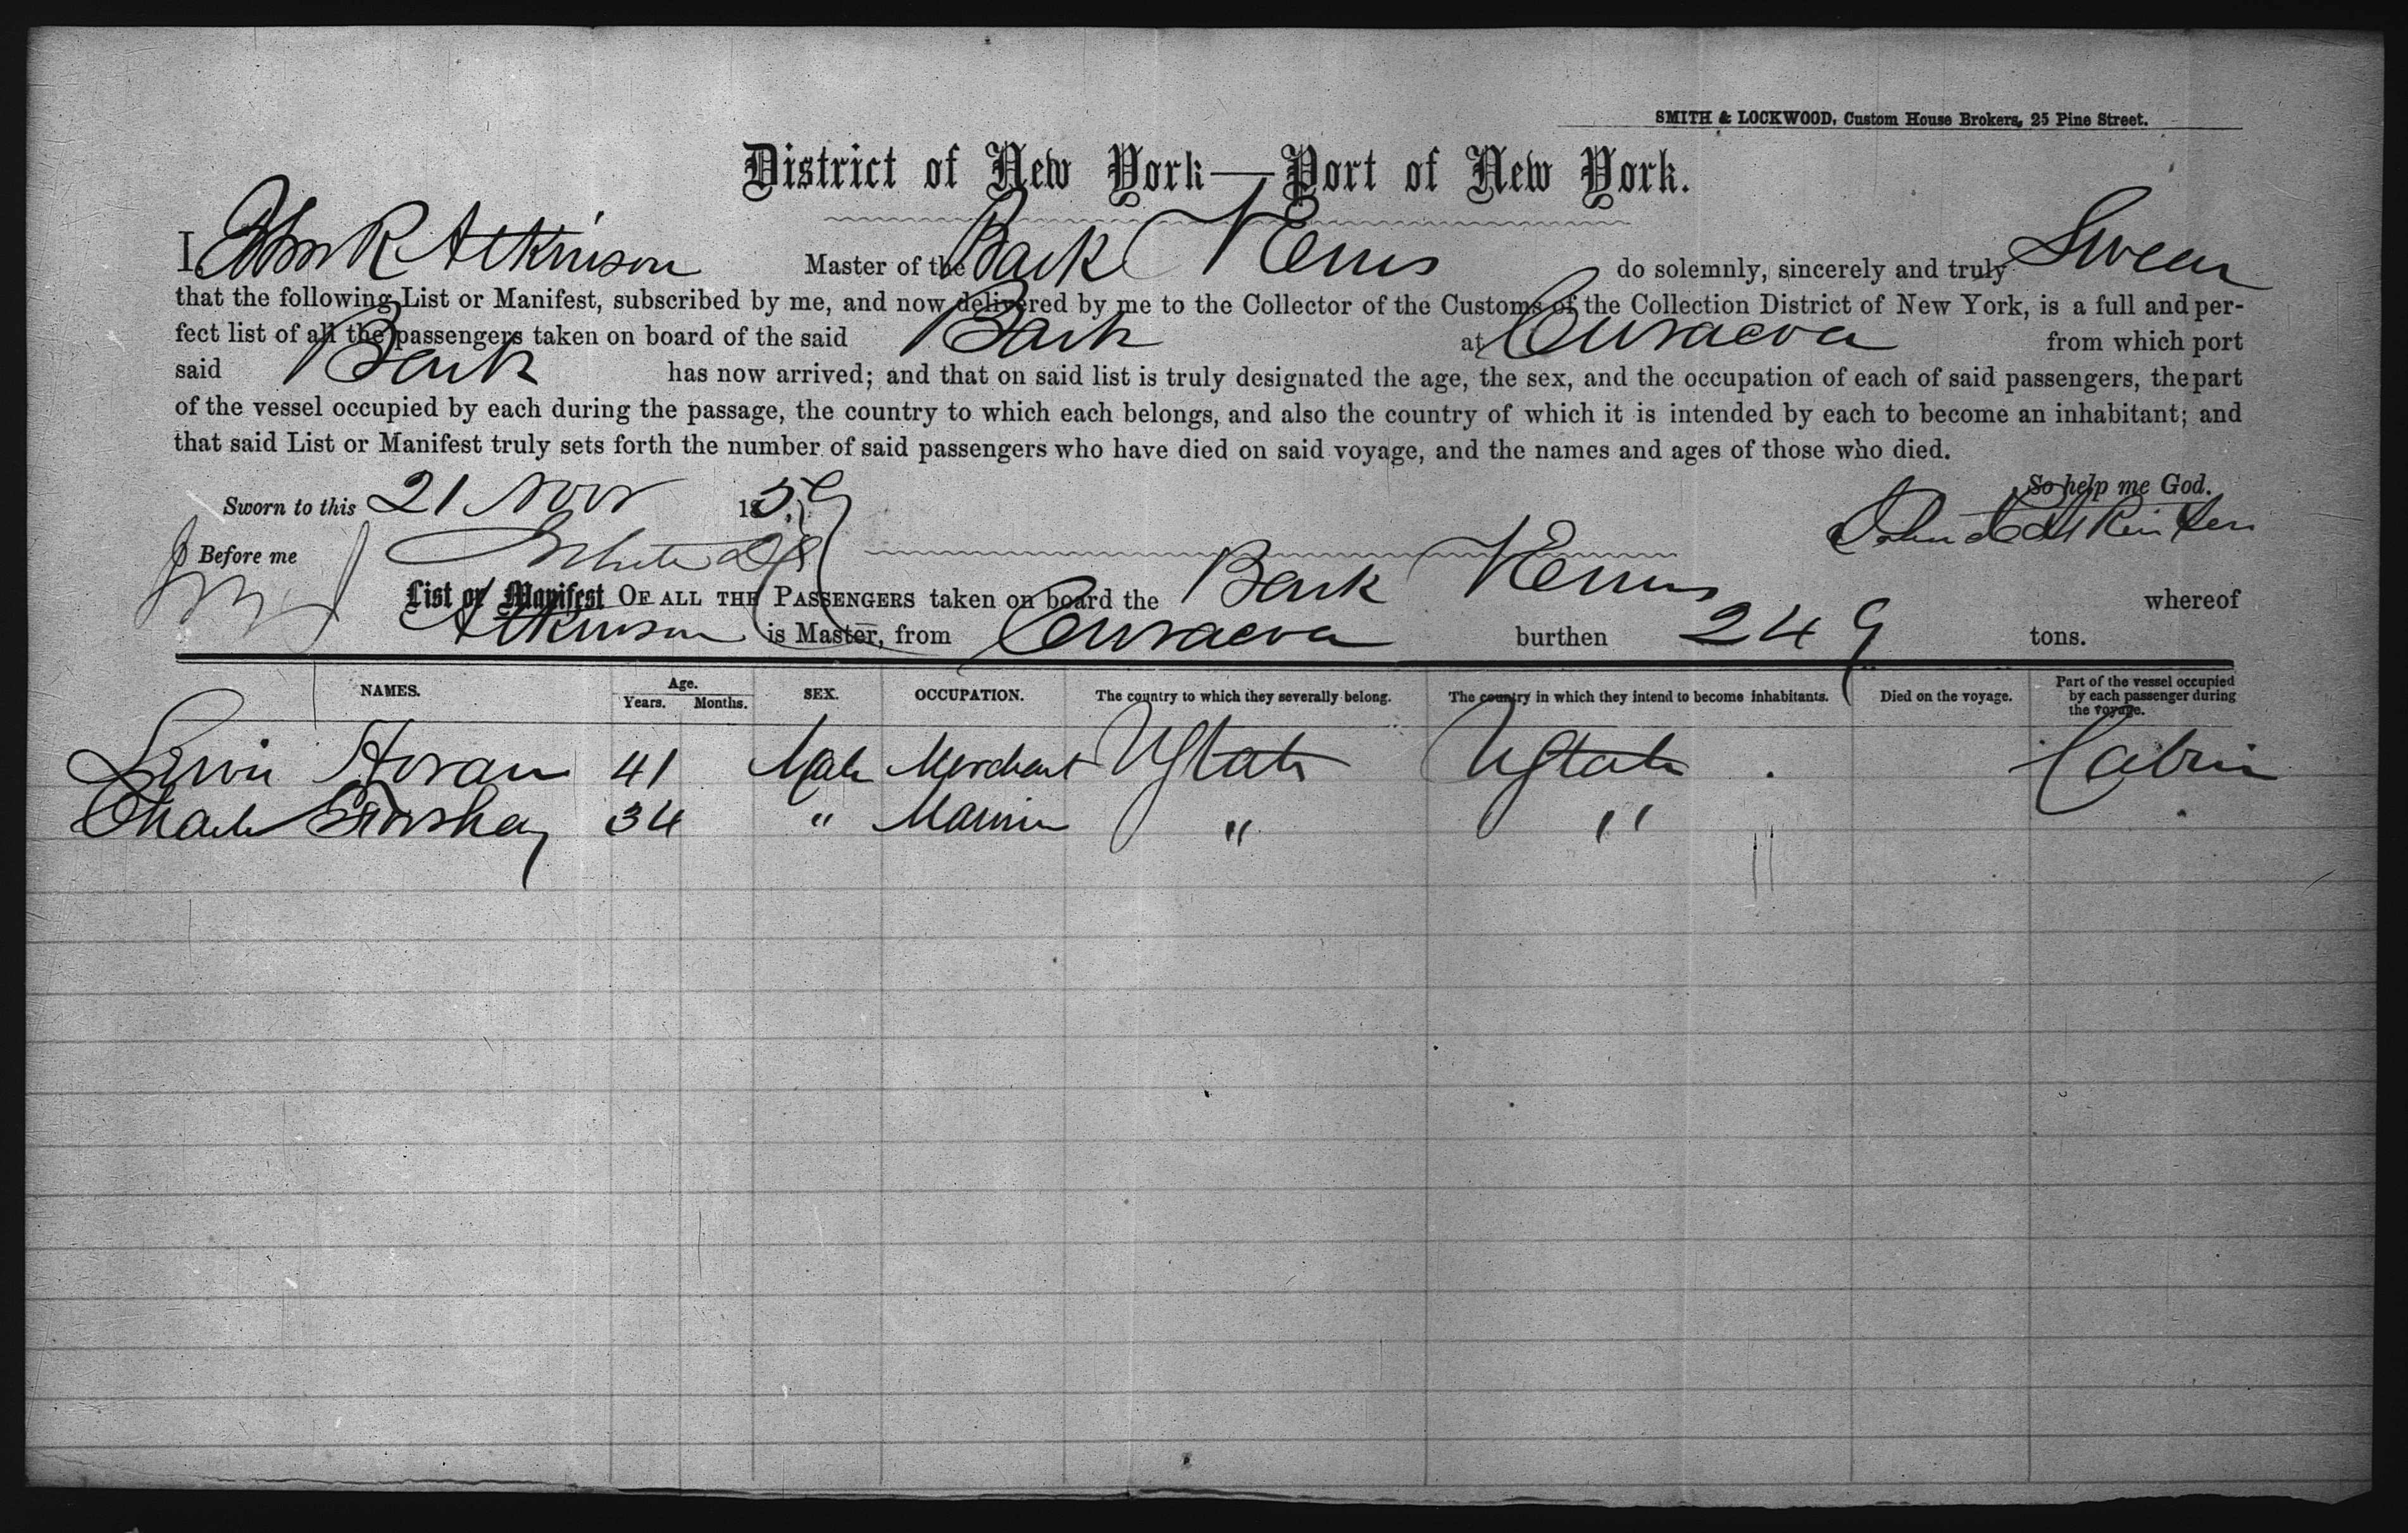 SMITH & LOCKWOOD, Custom House Brokers, 25 Pine Street.
District of New York—Port of New York.
I John R Atkinson Master of the Bark Venus do solemnly, sincerely and truly Swear
that the following List or Manifest, subscribed by me, and now delivered by me to the Collector of the Customs of the Collection District of New York, is a full and per-
fect list of all the passengers taken on board of the said Bark at Curacoa from which port
said Bark has now arrived; and that on said list is truly designated the age, the sex, and the occupation of each of said passengers, the part
of the vessel occupied by each during the passage, the country to which each belongs, and also the country of which it is intended by each to become an inhabitant; and
that said List or Manifest truly sets forth the number of said passengers who have died on said voyage, and the names and ages of those who died.
So help me God.
Sworn to this 21 Nov 1859
John R Atkinson
Before me
List or Manifest OF ALL THE PASSENGERS taken on board the Bark Venus whereof
Atkinson is Master, from Curacoa burthen 249 tons.
NAMES. Age. Years. Months. SEX. OCCUPATION. The country to which they severally belong. The country in which they intend to become inhabitants. Died on the voyage. Part of the vessel occupied by each passenger during the voyage.
Horan 41 Male Merchant UStates UStates Cabin
34 " Mariner " "